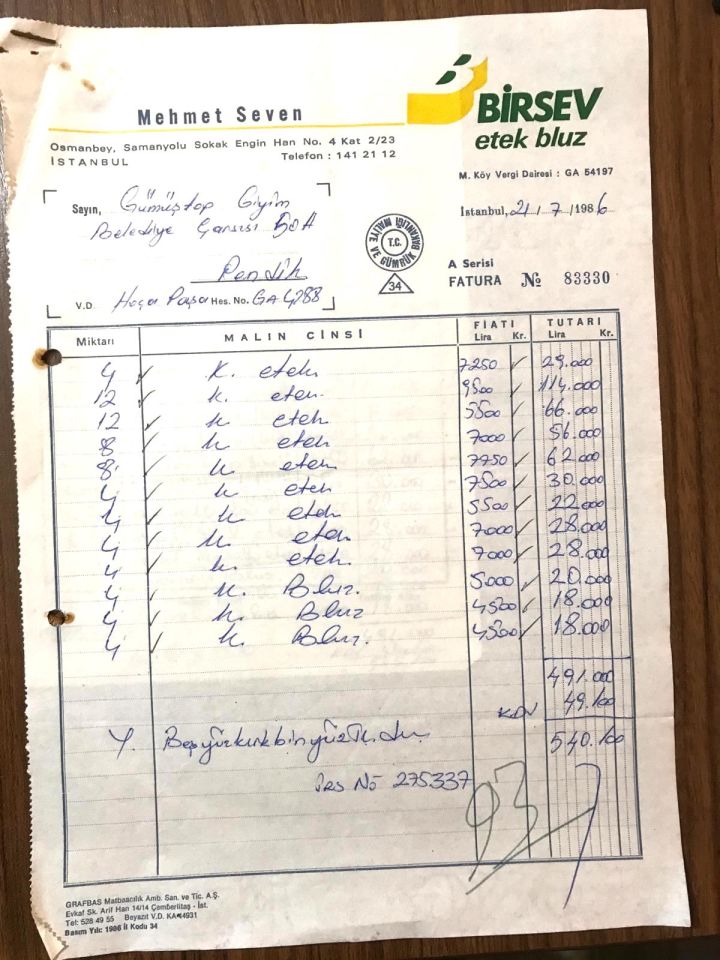 Mehmet Seven
BİRSEV
etek bluz
Osmanbey, Samanyolu Sokak Engin Han No. 4 Kat 2/23
İSTANBUL Telefon : 141 21 12
M. Köy Vergi Dairesi : GA 54197
Sayın, Gümüştop Giyim
Belediye Çarşısı 50A
Pendik
V.D. Hoca Paşa Hes. No. GA 4288
İstanbul, 21/7/1986
T.C. MALİYE VE GÜMRÜK BAKANLIĞI
34
A Serisi
FATURA № 83330
Miktarı MALIN CİNSİ FİATI Lira Kr. TUTARI Lira Kr.
4 K. etek 7250 29.000
12 K. etek 9500 114.000
12 K etek 5500 66.000
8 K etek 7000 56.000
8 K etek 7750 62.000
4 K etek 7500 30.000
4 K etek 5500 22.000
4 K. etek 7000 28.000
4 K. etek 7000 28.000
4 K. Bluz. 5000 20.000
4 K. Bluz 4500 18.000
4 K. Bluz. 4500 18.000
491.000
KDV 49.100
Y. Beşyüzkırkbinyüz TL. dır. 540.100
İrs No 275337
93
GRAFBAS Matbaacılık Amb. San. ve Tic. A.Ş.
Evkaf Sk. Arif Han 14/14 Çemberlitaş - İst.
Tel: 528 49 55 Beyazıt V.D. KA44931
Basım Yılı: 1986 İl Kodu 34